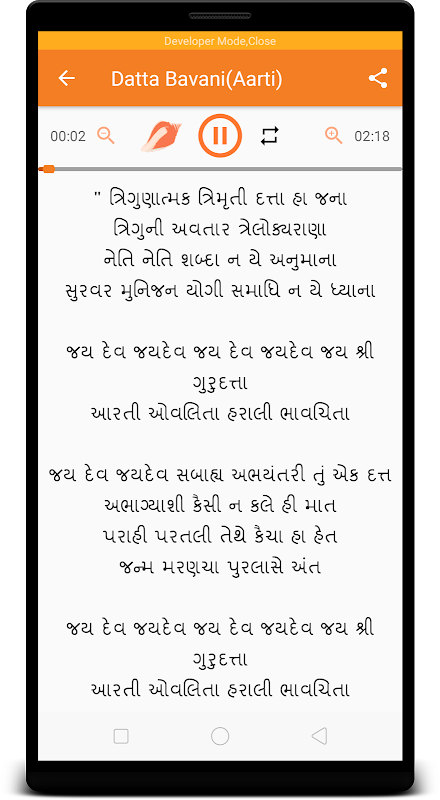 Developer Mode,Close
Datta Bavani(Aarti)
00:02 02:18
" ત્રિગુણાત્મક ત્રિમૃતી દત્તા હા જના
ત્રિગુની અવતાર ત્રેલોક્યરાણા
નેતિ નેતિ શબ્દા ન યે અનુમાના
સુરવર મુનિજન યોગી સમાધિ ન યે ધ્યાના
જય દેવ જયદેવ જય દેવ જયદેવ જય શ્રી
ગુરુદત્તા
આરતી ઓવલિતા હરાલી ભાવચિતા
જય દેવ જયદેવ સબાહ્ય અભયંતરી તું એક દત્ત
અભાગ્યાશી કૈસી ન કલે હી માત
પરાહી પરતલી તેથે કૈચા હા હેત
જન્મ મરણચા પુરલાસે અંત
જય દેવ જયદેવ જય દેવ જયદેવ જય શ્રી
ગુરુદત્તા
આરતી ઓવલિતા હરાલી ભાવચિતા